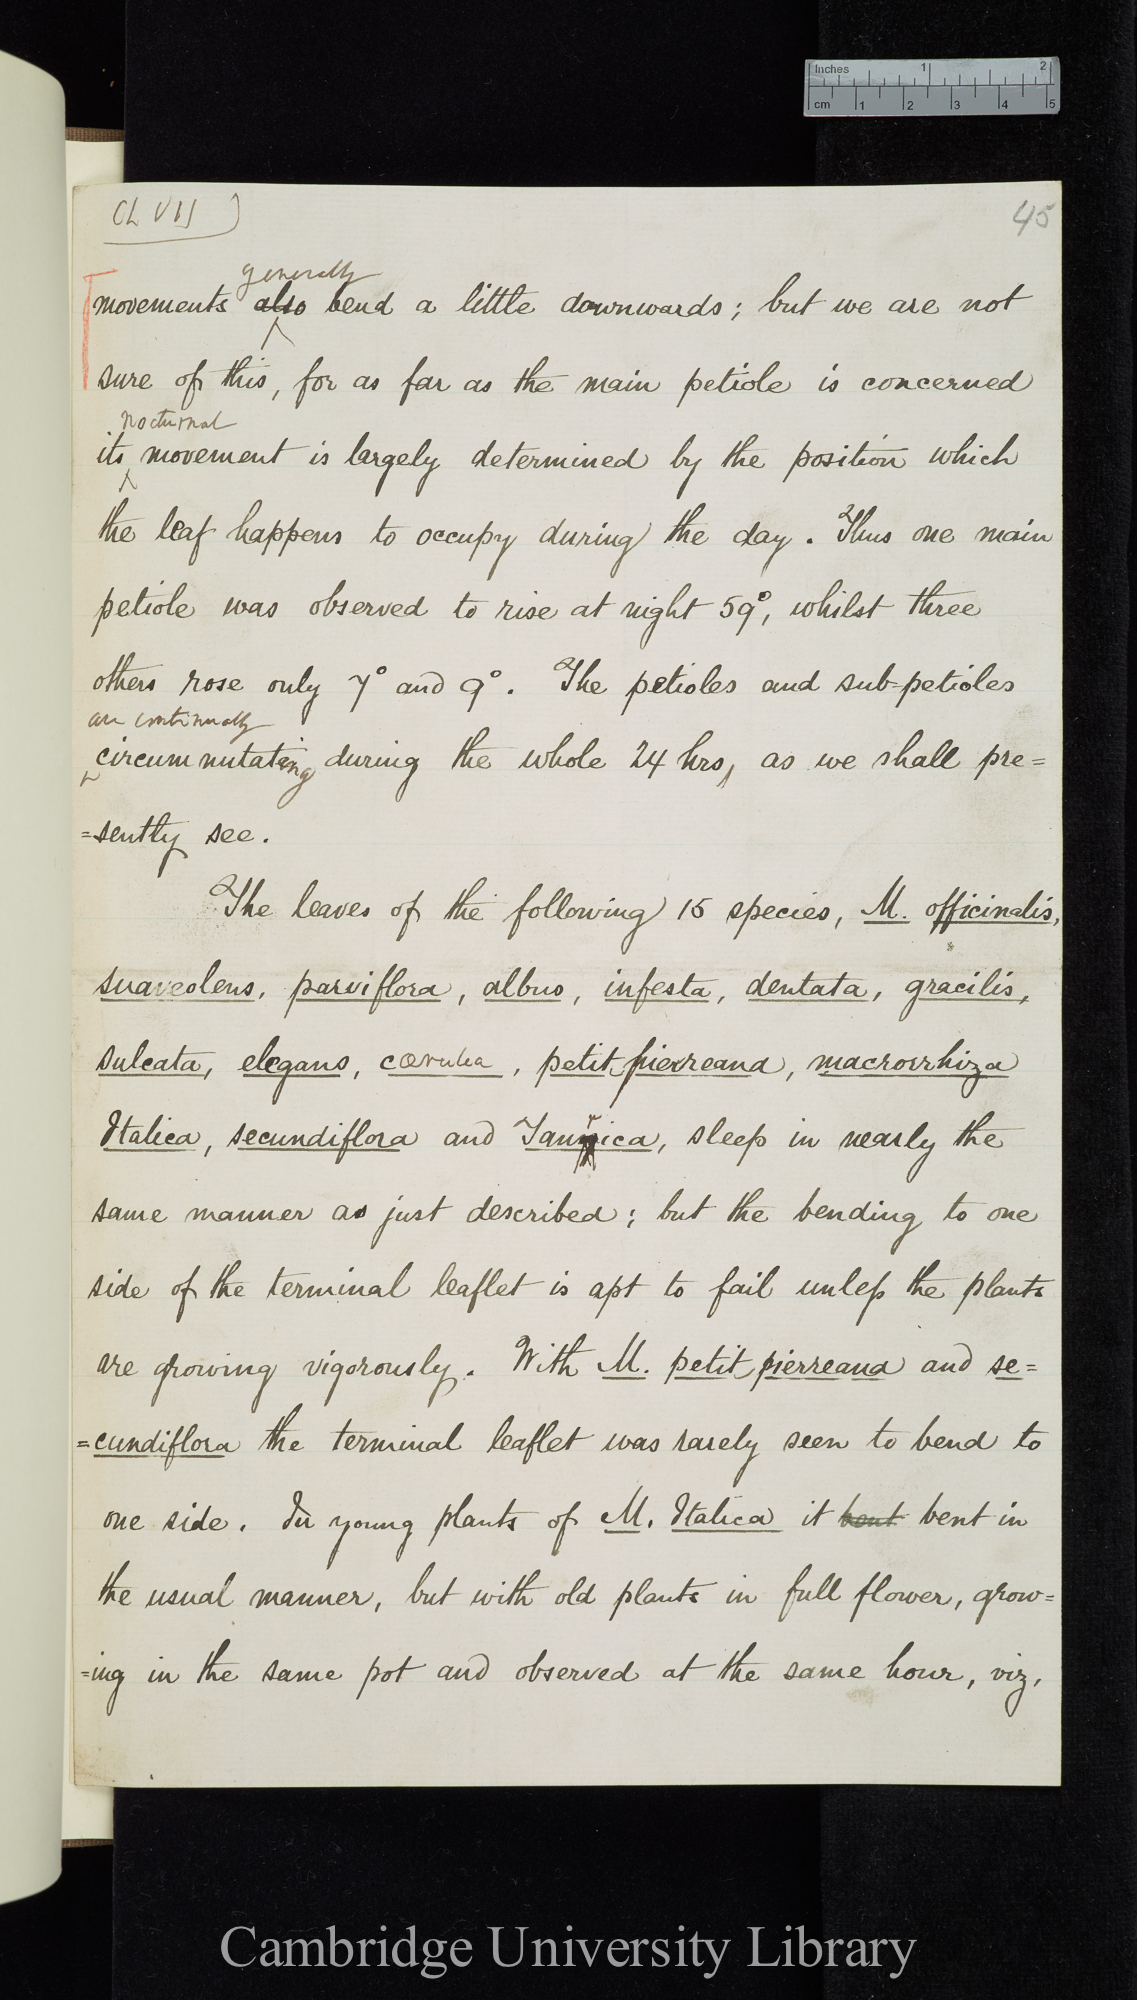 Inches 1 2
cm 1 2 3 4 5
CLVII
45
generally
movements also bend a little downwards; but we are not
sure of this, for as far as the main petiole is concerned
nocturnal
its movement is largely determined by the position which
the leaf happens to occupy during the day. Thus one main
petiole was observed to rise at night 59°, whilst three
others rose only 7° and 9°. The petioles and sub-petioles
are continually
circumnutating during the whole 24 hrs, as we shall pre=
=sently see.
The leaves of the following 15 species, M. officinalis,
suaveolens, parviflora, alba, infesta, dentata, gracilis,
sulcata, elegans, cœrulea, petit pierreana, macrorrhiza
Italica, secundiflora and Taurica, sleep in nearly the
same manner as just described; but the bending to one
side of the terminal leaflet is apt to fail unless the plants
are growing vigorously. With M. petit pierreana and se=
=cundiflora the terminal leaflet was rarely seen to bend to
one side. In young plants of M. Italica it bent bent in
the usual manner, but with old plants in full flower, grow=
=ing in the same pot and observed at the same hour, viz,
Cambridge University Library